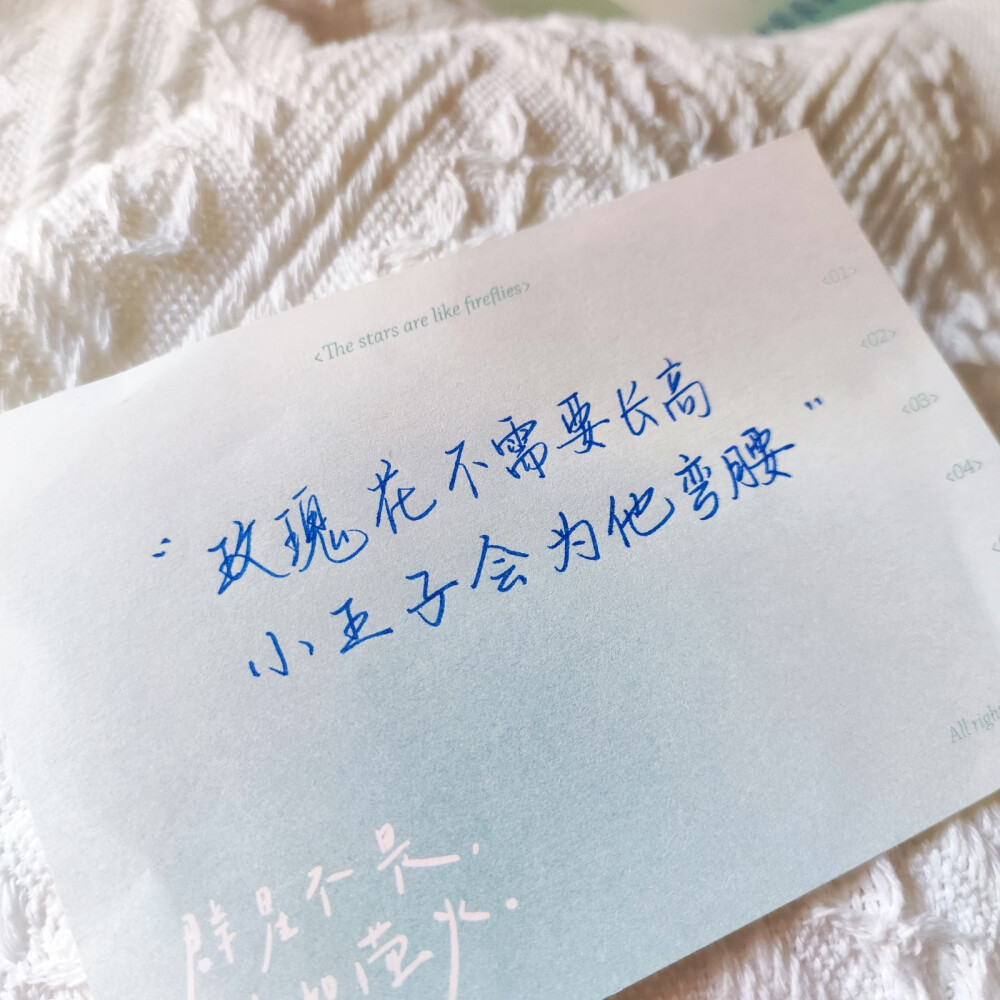 <The stars are like fireflies>
<01>
<02>
<03>
<04>
“玫瑰花不需要长高
小王子会为他弯腰”
All right
群星不是,
如萤火.